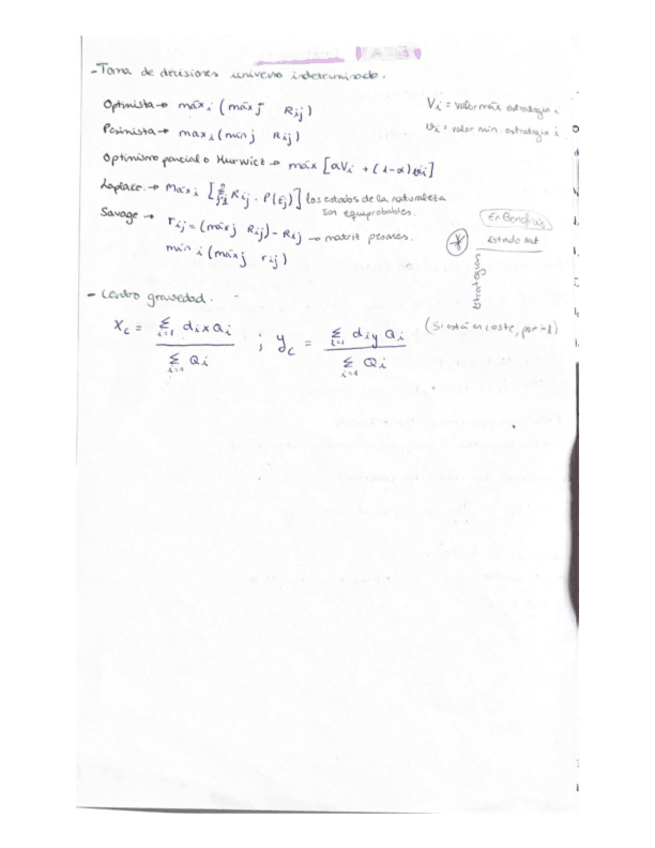 - Toma de decisiones universo indeterminado.
Optimista → máx i (máx j Rij)
Pesimista → max i (min j Rij)
Optimismo parcial o Hurwicz → máx [αVi + (1-α)vi]
Laplace → Máx i [Σ j=1 Rij · P(Ej)] los estados de la naturaleza
son equiprobables.
Savage → rij = (máx j Rij) - Rij → matriz pesares.
mín i (máx j rij)
Vi = valor máx estrategia i
vi = valor min. estrategia i
En Beneficios
* Estado Nat
Estrategias
(Si está en coste, por -1)
- Centro gravedad.
Xc = Σ i=1 dix Qi / Σ i=1 Qi ; yc = Σ i=1 diy Qi / Σ i=1 Qi